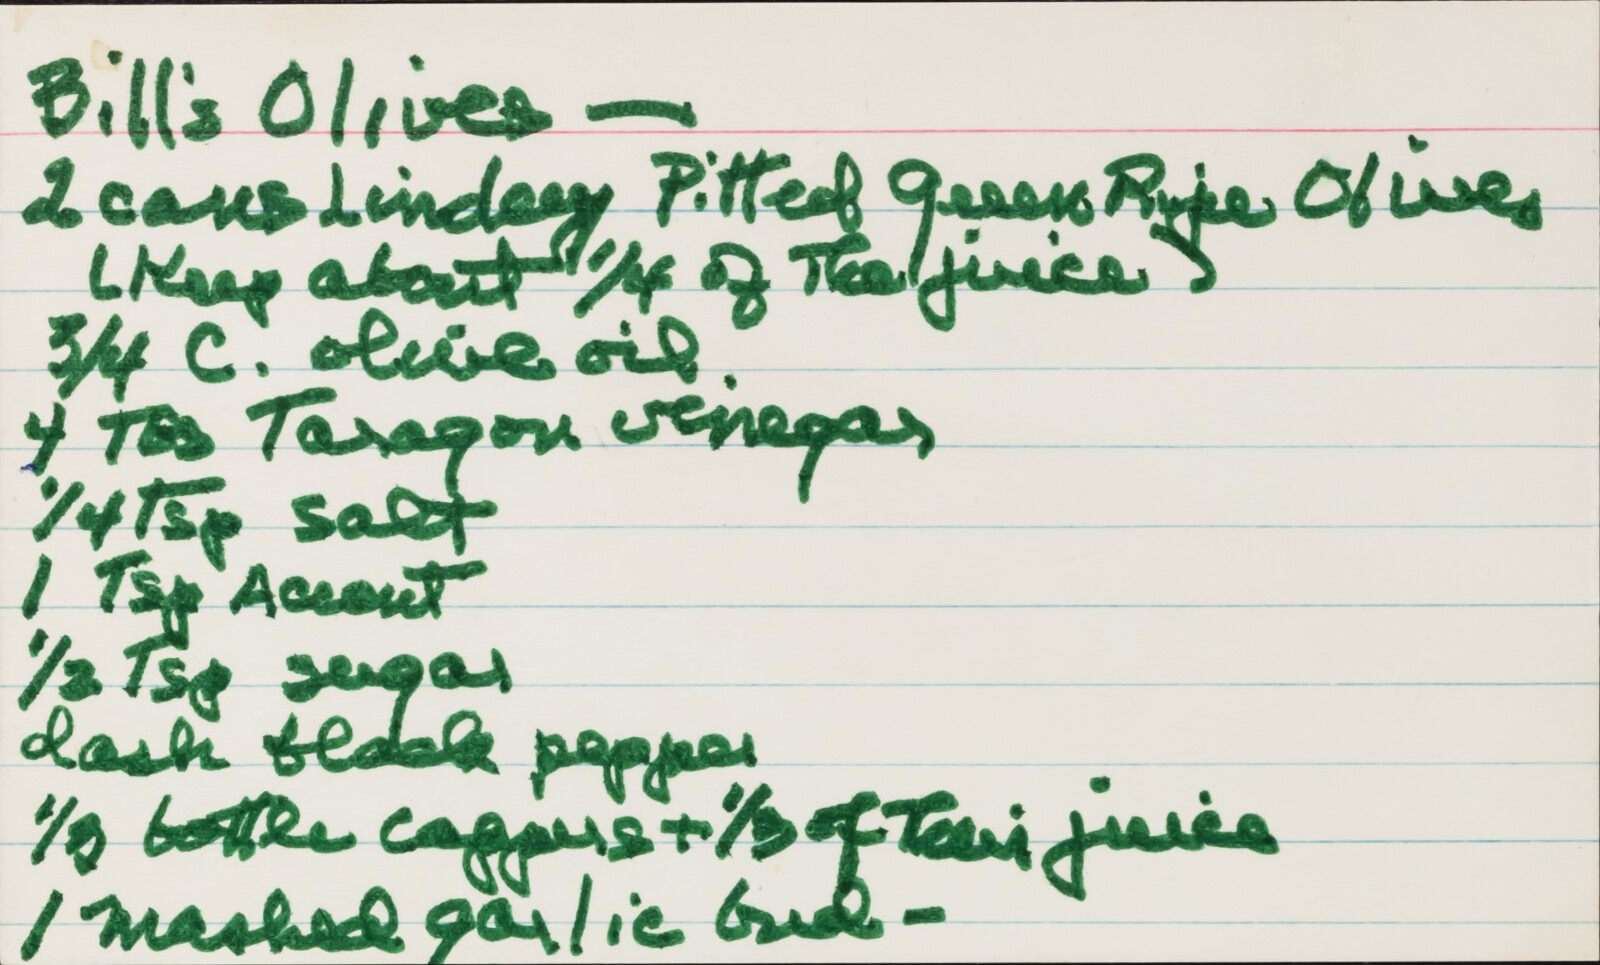 Bill's Olives —
2 cans Lindsay Pitted green Ripe Olives
(Keep about 1/4 of the juice)
3/4 C. olive oil
4 Tbs Taragon vinegar
1/4 Tsp salt
1 Tsp Accent
1/2 Tsp sugar
dash black pepper
1/3 bottle cappers + 1/3 of Their juice
1 mashed garlic bud -